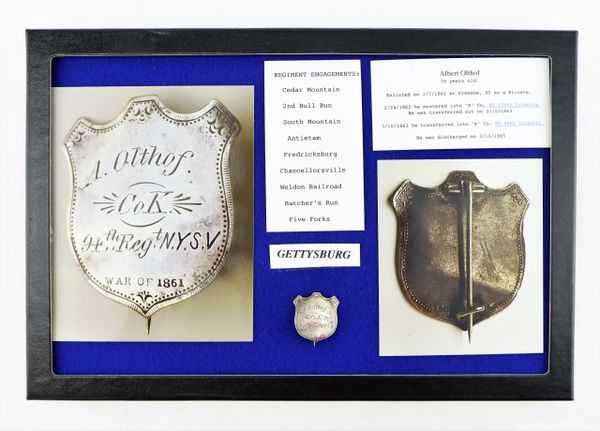 A. Olthof.
Co K.
94th Regt N.Y.S.V
WAR OF 1861
REGIMENT ENGAGEMENTS:
Cedar Mountain
2nd Bull Run
South Mountain
Antietam
Fredricksburg
Chancellorsville
Weldon Railroad
Hatcher's Run
Five Forks
GETTYSBURG
A. Olthof.
Co K.
94th Regt N.Y.S.V
Albert Olthof
years old.
Enlisted on 1/7/1862 at Freedom, NY as a Private.
2/24/1862 he mustered into "K" Co. NY 105th Infantry
He was transferred out on 3/10/1863
3/10/1863 he transferred into "K" Co. NY 94th Infantry
He was discharged on